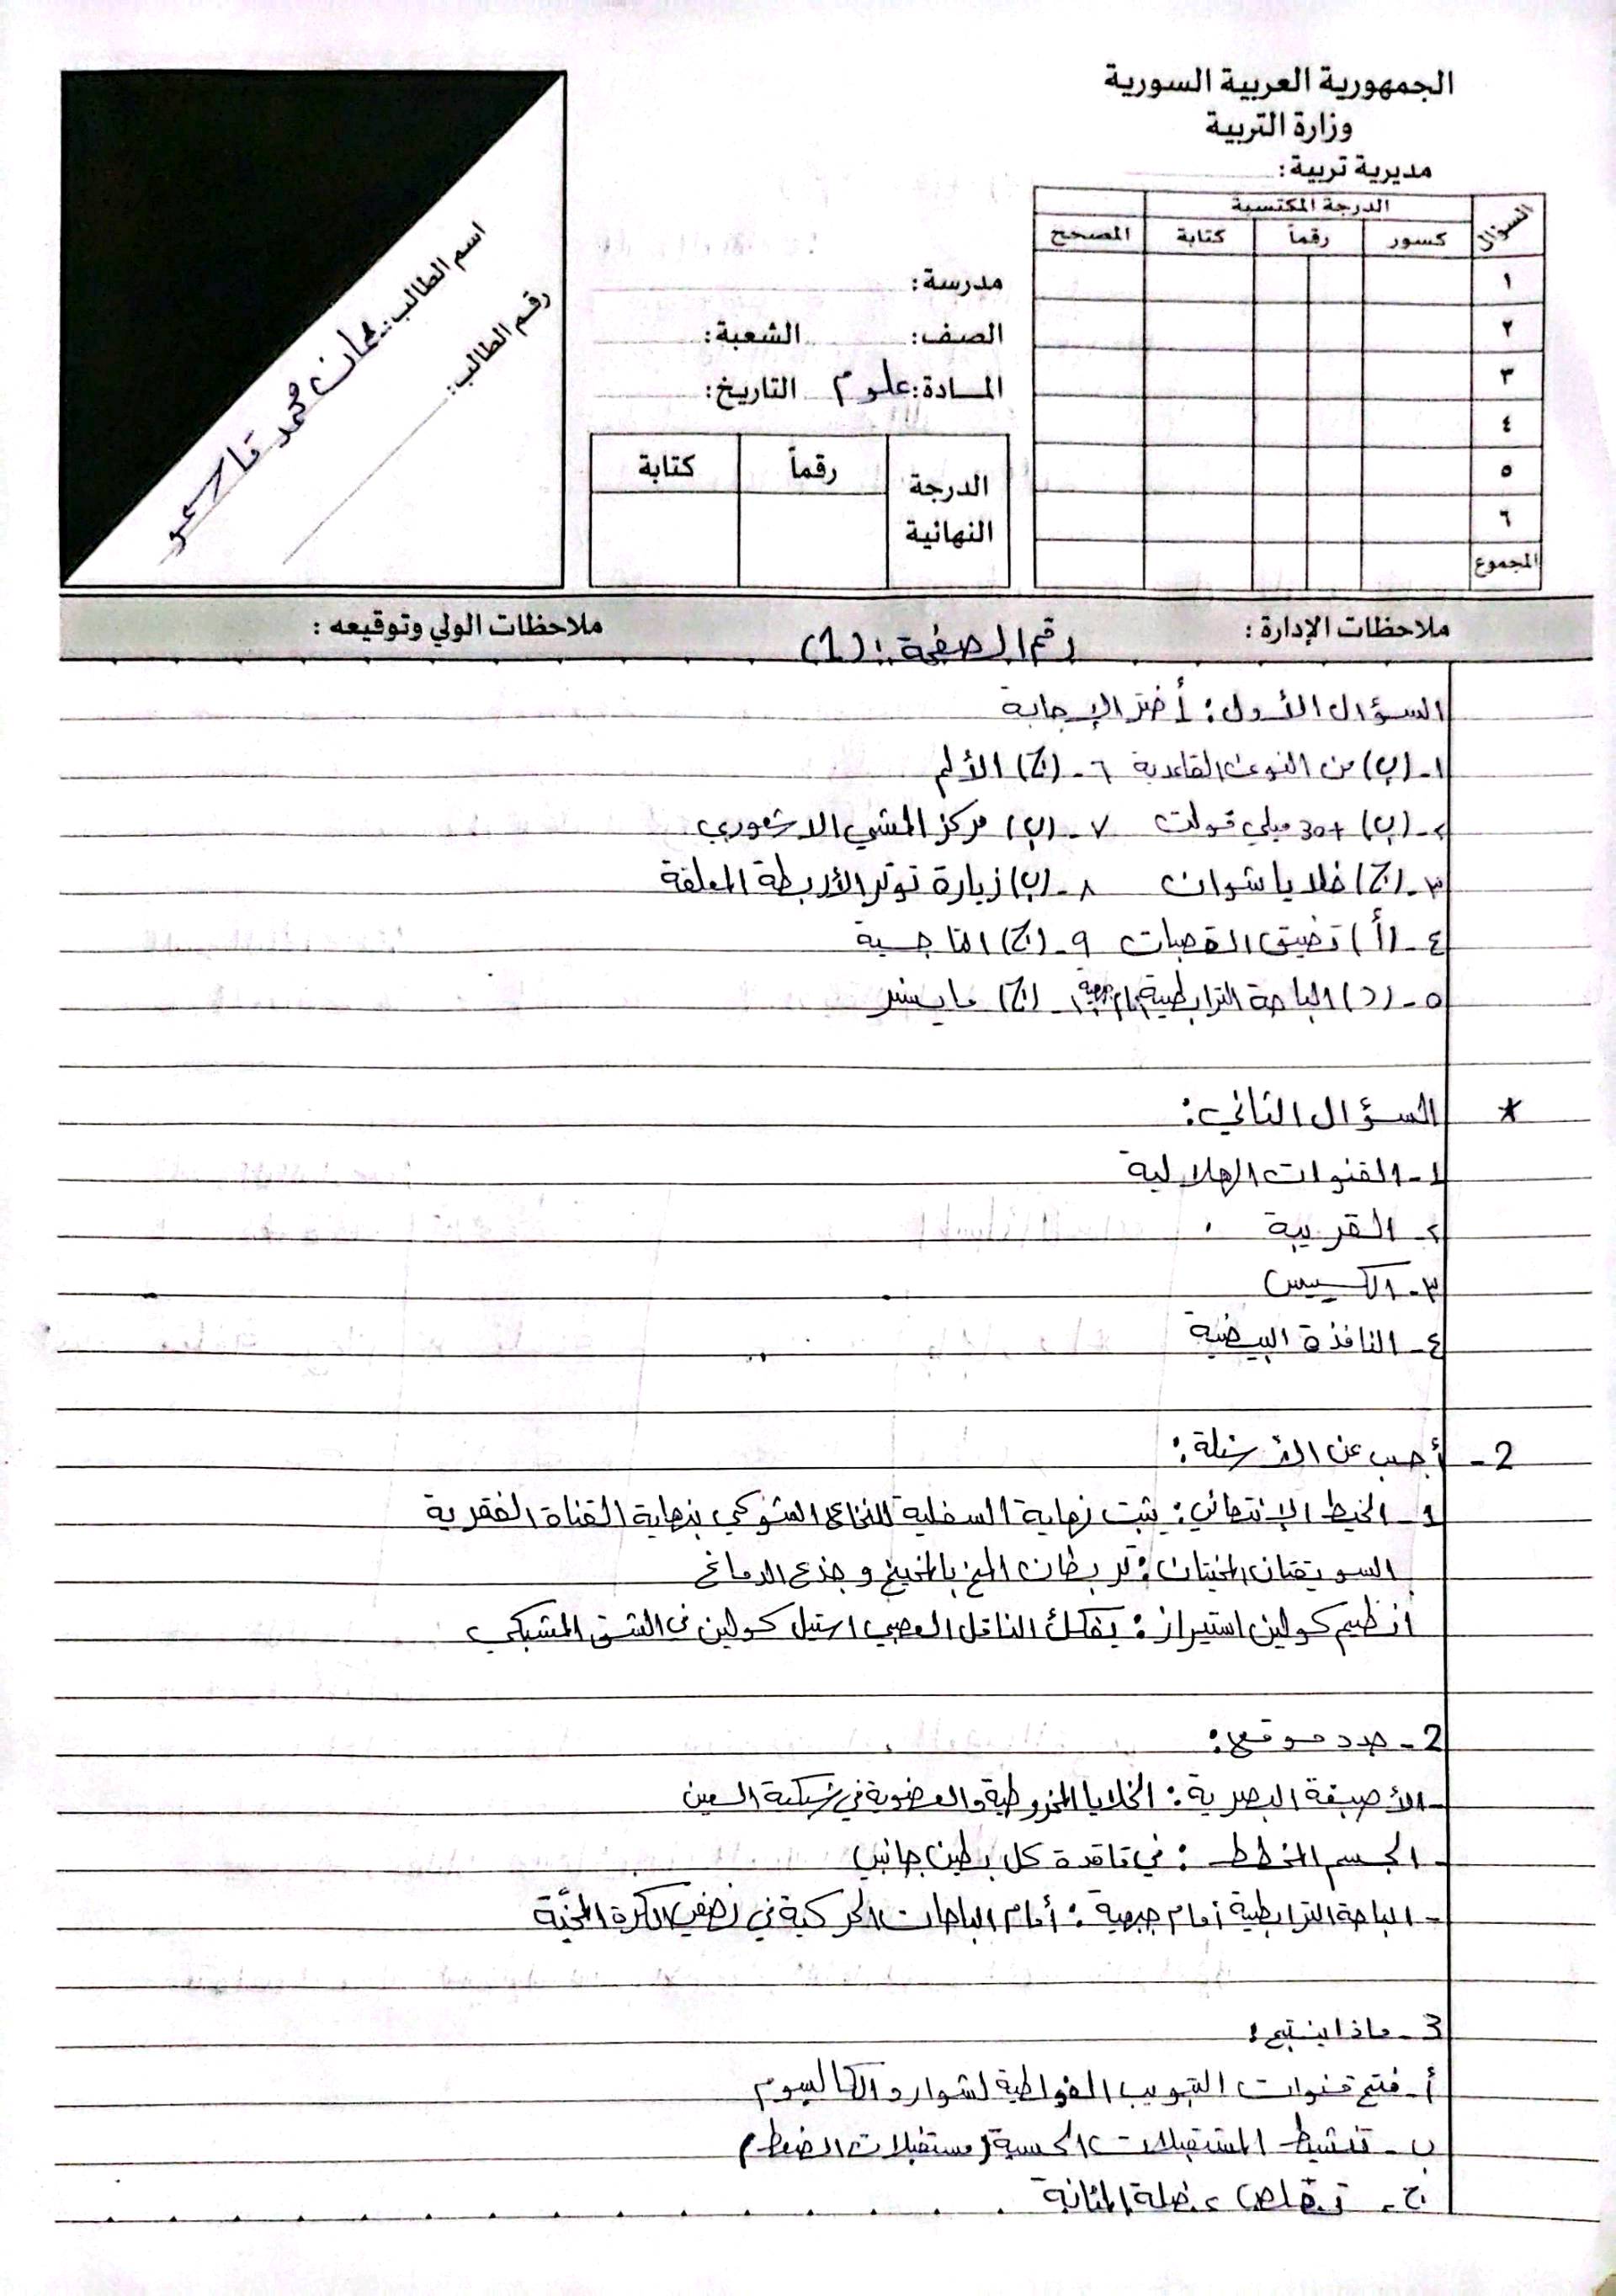 الجمهورية العربية السورية
وزارة التربية
مديرية تربية:
السؤال
الدرجة المكتسبة
كسور رقماً كتابة المصحح
١
٢
٣
٤
٥
٦
المجموع
مدرسة:
الصف: الشعبة:
المادة: علوم التاريخ:
الدرجة النهائية
رقماً كتابة
اسم الطالب: محمد
رقم الطالب:
ملاحظات الإدارة: رقم الصفحة: (1) ملاحظات الولي وتوقيعه:
السؤال الأول: أختر الإجابة
١- (ب) من النوى القاعدية ٦- (ج) الألم
٢- (ب) +30 ميلي فولت ٧- (ب) مركز المشي اللاشعوري
٣- (ج) خلايا شوان ٨- (ب) زيارة توتر الأربطة المعلقة
٤- (أ) تضيق القصبات ٩- (ج) القاجسية
٥- (د) الباحة الترابطية أمام جبهية ١٠- (ج) مايسنر
* السؤال الثاني:
١- القنوات الهلالية
٢- القريبة
٣- الكييس
٤- النافذة البيضية
2- أجب عن الأسئلة:
1- الخيط الإنتهائي: يثبت نهاية السفلية للنخاع الشوكي بنهاية القناة الفقرية
السويقتان المخيتان: تربطان المخ بالمخيخ وجذع الدماغ
أنظيم كولين استيراز: يفكك الناقل العصبي استيل كولين في الشق المشبكي
2- حدد موقع:
- الأصبغة البصرية: الخلايا المخروطية والعضوية في شبكية العين
- الجسم المخطط: في قاعدة كل بطين جانبي
- الباحة الترابطية أمام جبهية: أمام الباحات الحركية في نصفي الكرة المخيّة
3- ماذا ينتج:
أ- فتح قنوات التبويب الفولطية لشوارد الكالسيوم
ب- تنشيط المستقبلات الحسية (مستقبلات الضغط)
ج- تقلص عضلة المثانة